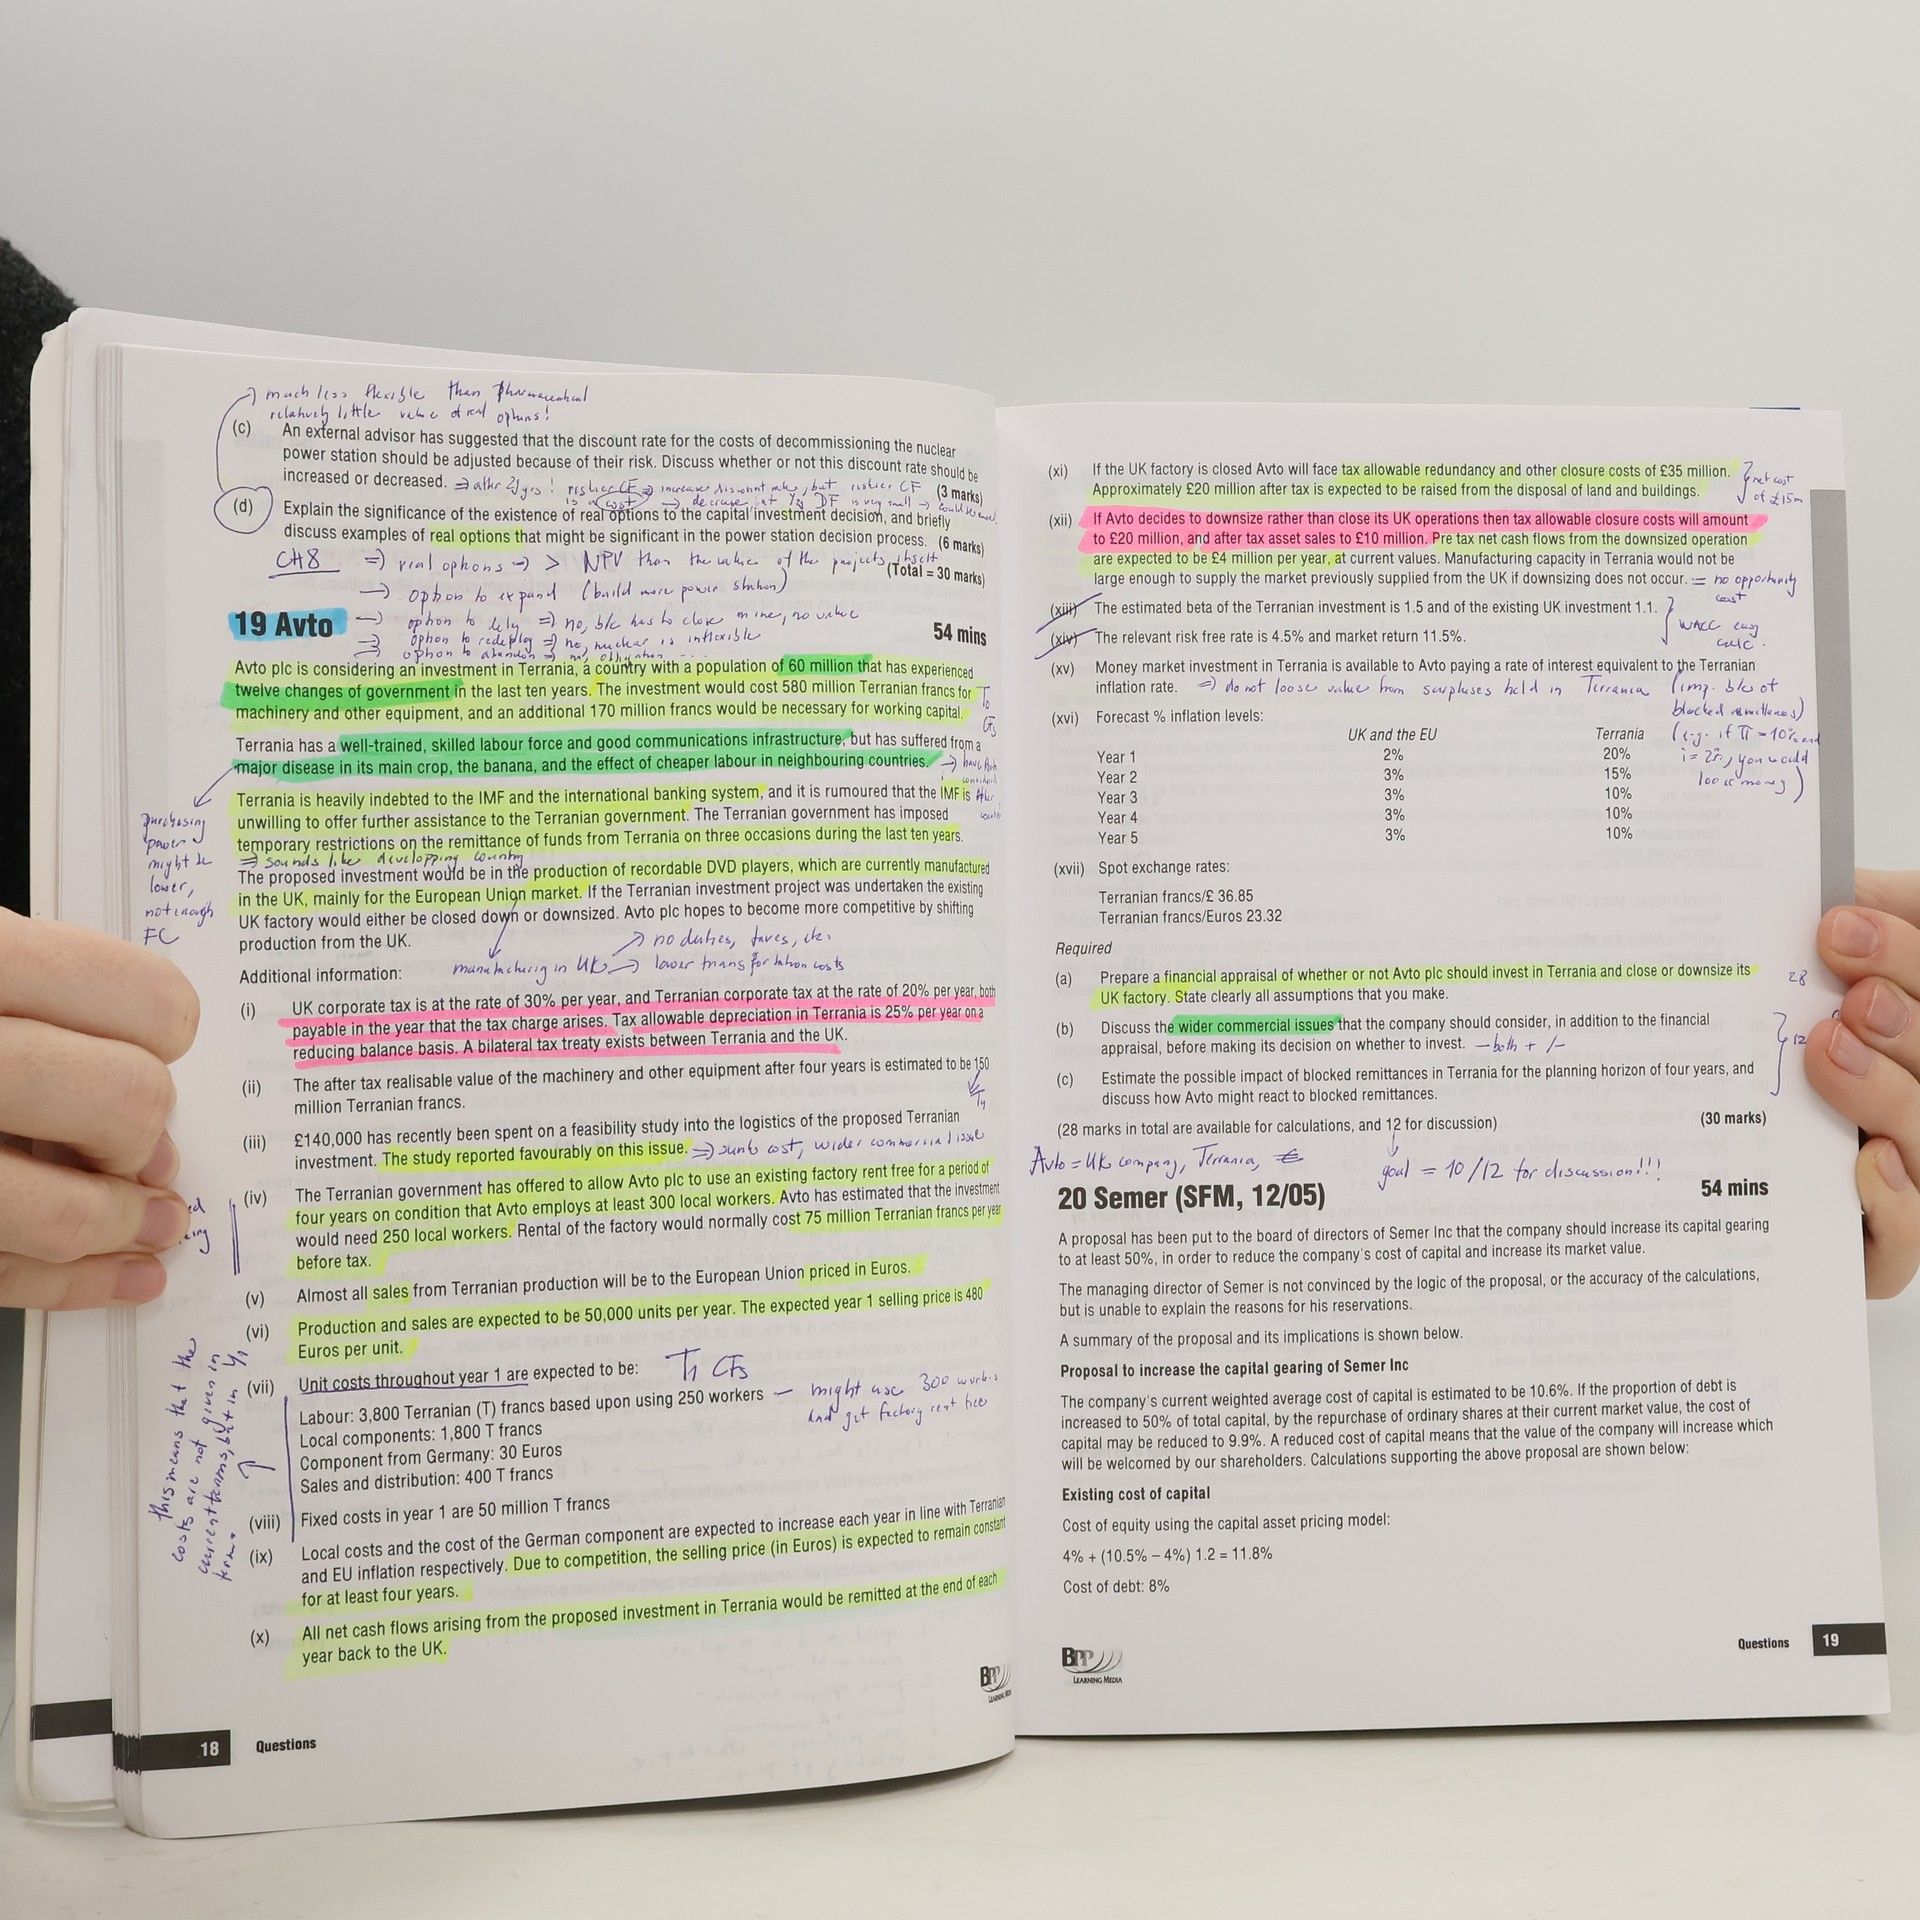 much less flexible than pharmaceutical
relatively little value of real options!
(c) An external advisor has suggested that the discount rate for the costs of decommissioning the nuclear
power station should be adjusted because of their risk. Discuss whether or not this discount rate should be
increased or decreased. (3 marks)
(d) Explain the significance of the existence of real options to the capital investment decision, and briefly
discuss examples of real options that might be significant in the power station decision process. (6 marks)
CH8 ⇒ real options → > NPV than the value of the projects itself
(Total = 30 marks)
→ option to expand (build more power station)
19 Avto
54 mins
⇒ no, b/c has to close mine, no value
option to redeploy ⇒ no, nuclear is inflexible
Avto plc is considering an investment in Terrania, a country with a population of 60 million that has experienced
twelve changes of government in the last ten years. The investment would cost 580 million Terranian francs for
machinery and other equipment, and an additional 170 million francs would be necessary for working capital.
Terrania has a well-trained, skilled labour force and good communications infrastructure, but has suffered from a
major disease in its main crop, the banana, and the effect of cheaper labour in neighbouring countries.
Terrania is heavily indebted to the IMF and the international banking system, and it is rumoured that the IMF is
unwilling to offer further assistance to the Terranian government. The Terranian government has imposed
temporary restrictions on the remittance of funds from Terrania on three occasions during the last ten years.
⇒ sounds like developping country
purchasing
power
might be
lower,
not enough
FC
The proposed investment would be in the production of recordable DVD players, which are currently manufactured
in the UK, mainly for the European Union market. If the Terranian investment project was undertaken the existing
UK factory would either be closed down or downsized. Avto plc hopes to become more competitive by shifting
production from the UK.
no duties, taxes, etc.
Additional information:
manufacturing in UK → lower transportation costs
(i) UK corporate tax is at the rate of 30% per year, and Terranian corporate tax at the rate of 20% per year, both
payable in the year that the tax charge arises. Tax allowable depreciation in Terrania is 25% per year on a
reducing balance basis. A bilateral tax treaty exists between Terrania and the UK.
(ii) The after tax realisable value of the machinery and other equipment after four years is estimated to be 150
million Terranian francs.
(iii) £140,000 has recently been spent on a feasibility study into the logistics of the proposed Terranian
investment. The study reported favourably on this issue. ⇒ sunk cost, wider commercial issue
(iv) The Terranian government has offered to allow Avto plc to use an existing factory rent free for a period of
four years on condition that Avto employs at least 300 local workers. Avto has estimated that the investment
would need 250 local workers. Rental of the factory would normally cost 75 million Terranian francs per year
before tax.
(v) Almost all sales from Terranian production will be to the European Union priced in Euros.
(vi) Production and sales are expected to be 50,000 units per year. The expected year 1 selling price is 480
Euros per unit.
(vii) Unit costs throughout year 1 are expected to be: T1 CFs
Labour: 3,800 Terranian (T) francs based upon using 250 workers – might use 300 workers
and get factory rent free
Local components: 1,800 T francs
Component from Germany: 30 Euros
Sales and distribution: 400 T francs
(viii) Fixed costs in year 1 are 50 million T francs
this means that the
costs are not given in
current terms, but in Y1
terms
(ix) Local costs and the cost of the German component are expected to increase each year in line with Terranian
and EU inflation respectively. Due to competition, the selling price (in Euros) is expected to remain constant
for at least four years.
(x) All net cash flows arising from the proposed investment in Terrania would be remitted at the end of each
year back to the UK.
BPP
LEARNING MEDIA
18 Questions
(xi) If the UK factory is closed Avto will face tax allowable redundancy and other closure costs of £35 million.
Approximately £20 million after tax is expected to be raised from the disposal of land and buildings.
net cost
of £15m
(xii) If Avto decides to downsize rather than close its UK operations then tax allowable closure costs will amount
to £20 million, and after tax asset sales to £10 million. Pre tax net cash flows from the downsized operation
are expected to be £4 million per year, at current values. Manufacturing capacity in Terrania would not be
large enough to supply the market previously supplied from the UK if downsizing does not occur. = no opportunity
cost
(xiii) The estimated beta of the Terranian investment is 1.5 and of the existing UK investment 1.1.
(xiv) The relevant risk free rate is 4.5% and market return 11.5%.
WACC easy
calc.
(xv) Money market investment in Terrania is available to Avto paying a rate of interest equivalent to the Terranian
inflation rate. ⇒ do not loose value from surpluses held in Terrania (imp. b/c of
blocked remittances)
(xvi) Forecast % inflation levels:
(e.g. if π = 10% and
i = 2%, you would
loose money)
UK and the EU Terrania
Year 1 2% 20%
Year 2 3% 15%
Year 3 3% 10%
Year 4 3% 10%
Year 5 3% 10%
(xvii) Spot exchange rates:
Terranian francs/£ 36.85
Terranian francs/Euros 23.32
Required
(a) Prepare a financial appraisal of whether or not Avto plc should invest in Terrania and close or downsize its
UK factory. State clearly all assumptions that you make.
28
(b) Discuss the wider commercial issues that the company should consider, in addition to the financial
appraisal, before making its decision on whether to invest. – both + / –
12
(c) Estimate the possible impact of blocked remittances in Terrania for the planning horizon of four years, and
discuss how Avto might react to blocked remittances.
(28 marks in total are available for calculations, and 12 for discussion) (30 marks)
Avto = UK company, Terrania, €
goal = 10/12 for discussion!!!
20 Semer (SFM, 12/05) 54 mins
A proposal has been put to the board of directors of Semer Inc that the company should increase its capital gearing
to at least 50%, in order to reduce the company's cost of capital and increase its market value.
The managing director of Semer is not convinced by the logic of the proposal, or the accuracy of the calculations,
but is unable to explain the reasons for his reservations.
A summary of the proposal and its implications is shown below.
Proposal to increase the capital gearing of Semer Inc
The company's current weighted average cost of capital is estimated to be 10.6%. If the proportion of debt is
increased to 50% of total capital, by the repurchase of ordinary shares at their current market value, the cost of
capital may be reduced to 9.9%. A reduced cost of capital means that the value of the company will increase which
will be welcomed by our shareholders. Calculations supporting the above proposal are shown below:
Existing cost of capital
Cost of equity using the capital asset pricing model:
4% + (10.5% – 4%) 1.2 = 11.8%
Cost of debt: 8%
BPP
LEARNING MEDIA
Questions 19